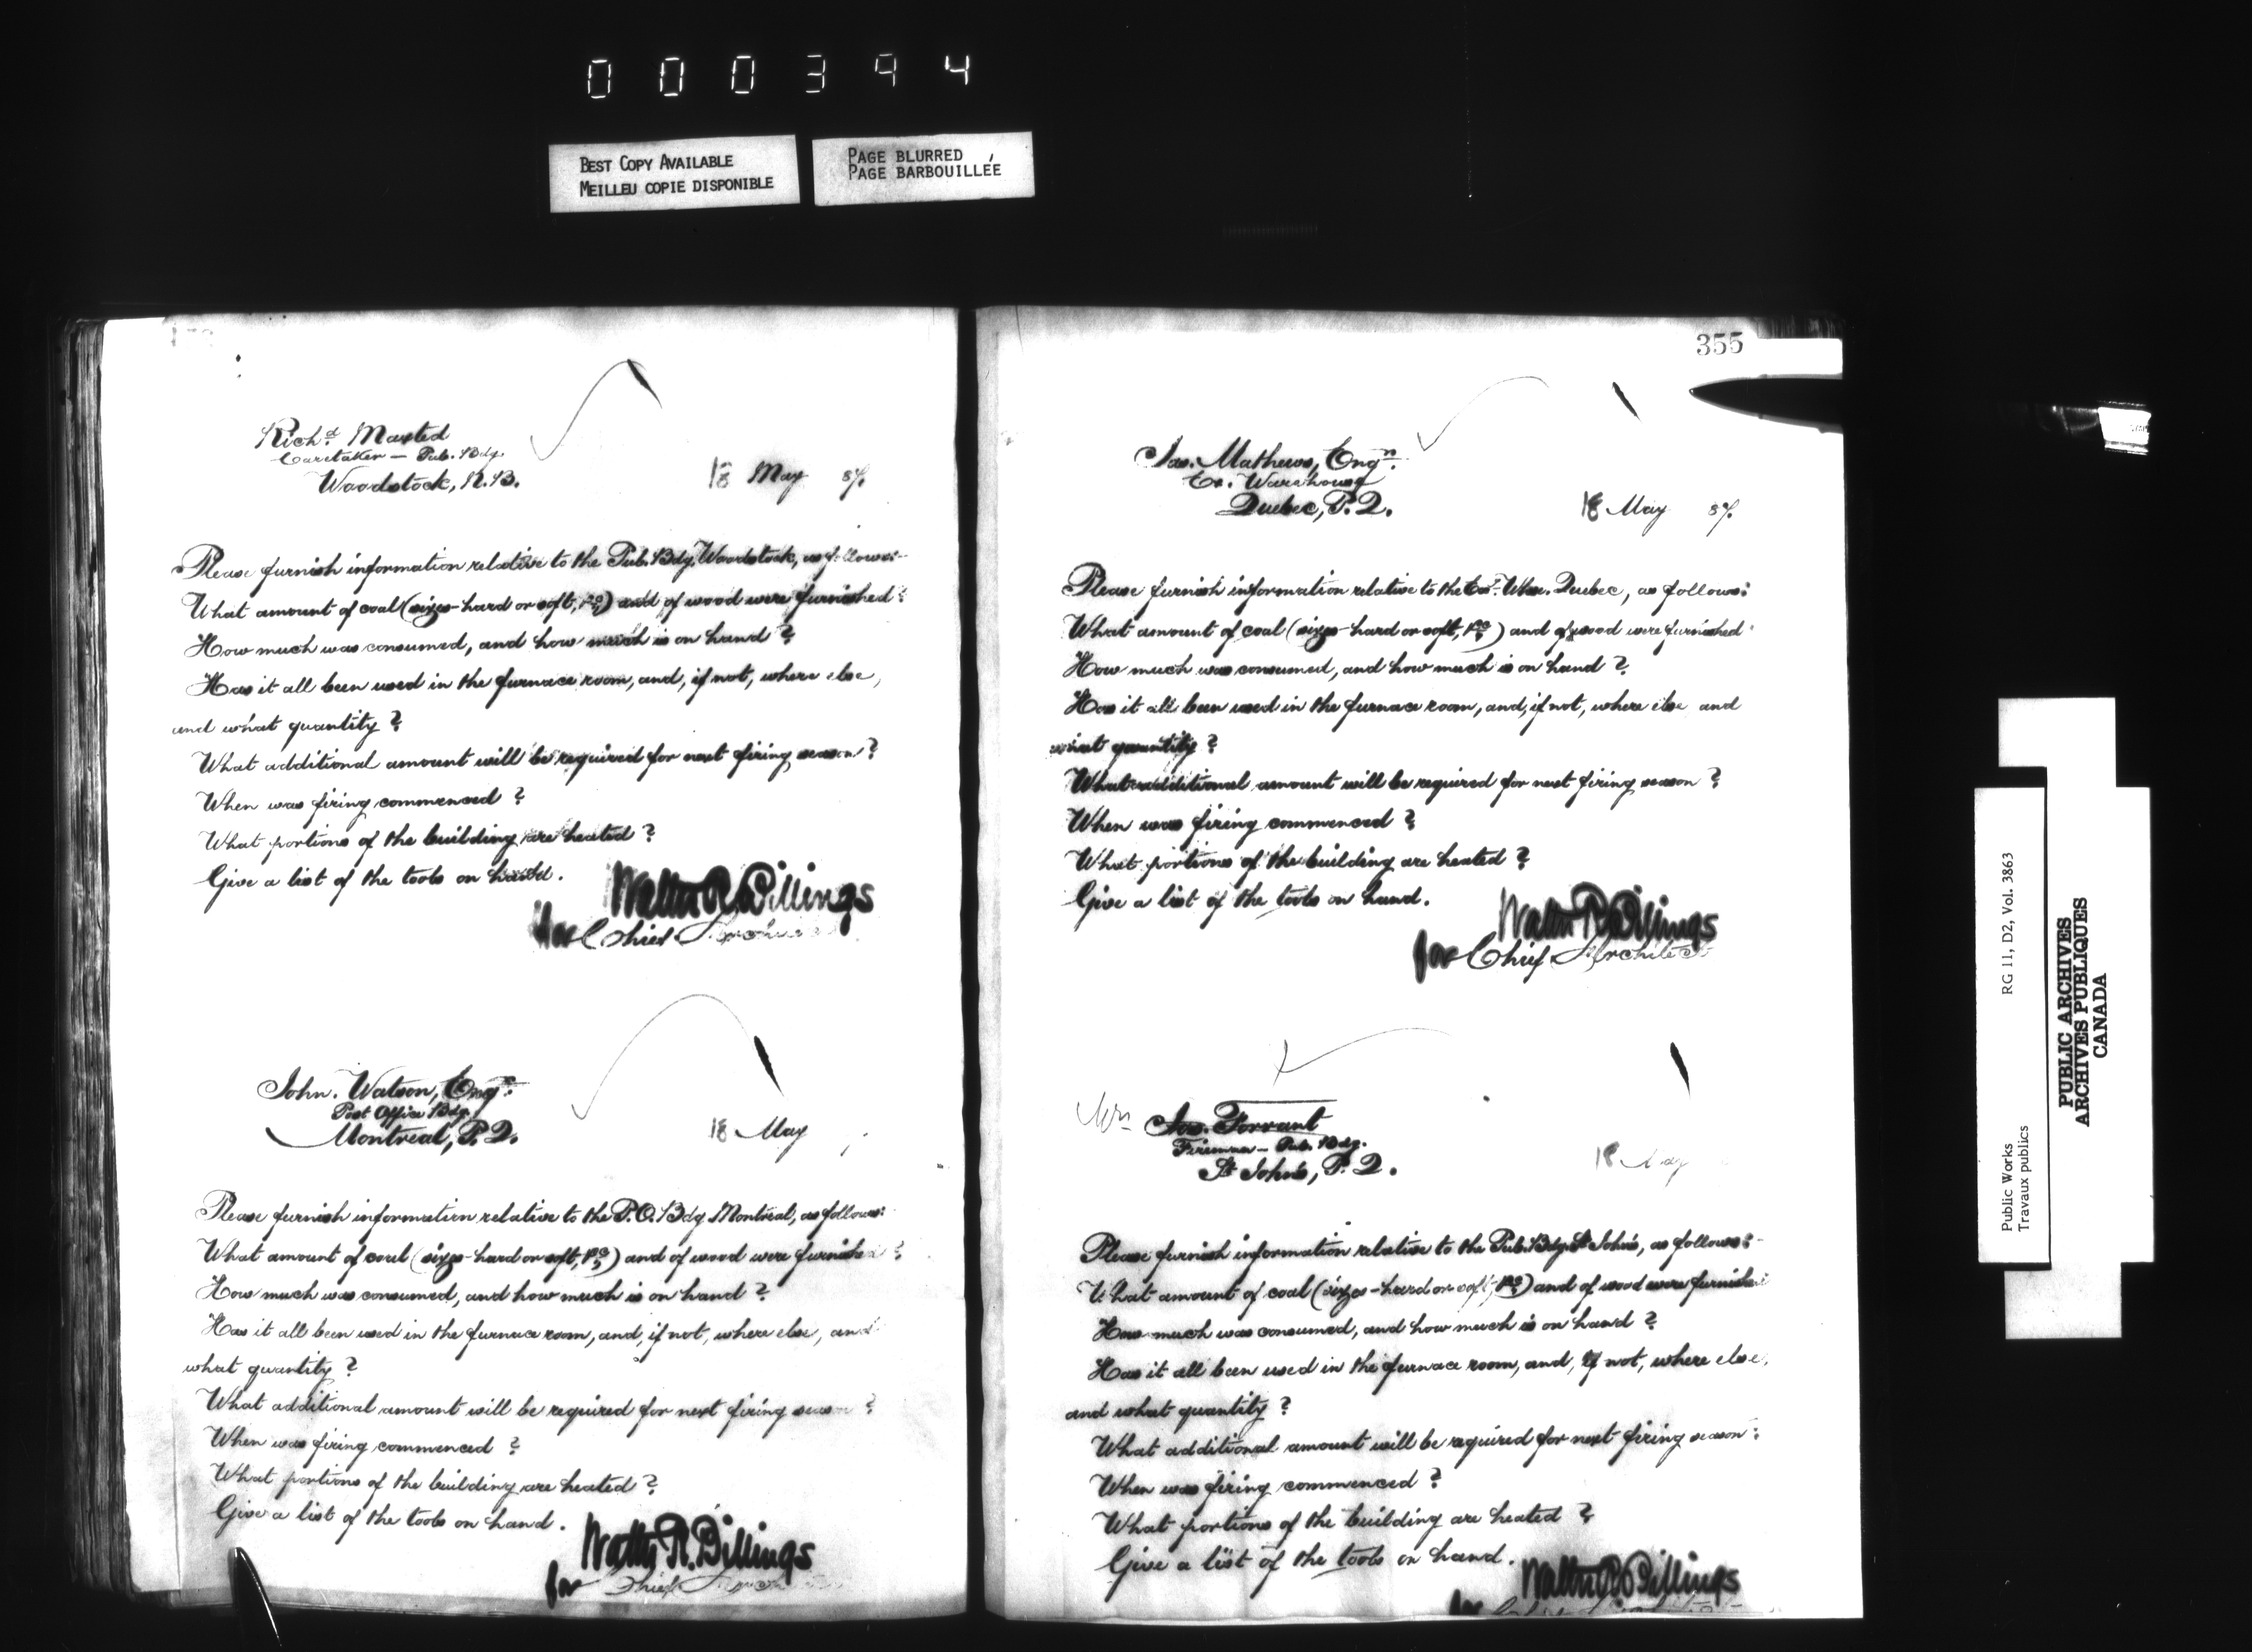 000394
BEST COPY AVAILABLE
MEILLEU COPIE DISPONIBLE
PAGE BLURRED
PAGE BARBOUILLÉE
Richd. Masted
Caretaker — Pub. Bdg.
Woodstock, N.B.
18 May 87.
Please furnish information relative to the Pub. Bdg. Woodstock, as follows:-
What amount of coal (sizes - hard or soft, &c) and of wood were furnished?
How much was consumed, and how much is on hand?
Has it all been used in the furnace room, and, if not, where else,
and what quantity?
What additional amount will be required for next firing season?
When was firing commenced?
What portions of the building are heated?
Give a list of the tools on hand.
Walter R. Billings
for Chief Architect
John. Watson, Engr.
Post Office Bdg.
Montreal, P.Q.
18 May
Please furnish information relative to the P.O. Bdg. Montreal, as follows:
What amount of coal (sizes - hard or soft, &c) and of wood were furnished?
How much was consumed, and how much is on hand?
Has it all been used in the furnace room, and, if not, where else, and
what quantity?
What additional amount will be required for next firing season?
When was firing commenced?
What portions of the building are heated?
Give a list of the tools on hand.
Walter R. Billings
for Chief Architect
355
Jas. Mathews, Engn.
Ex. Warehouse
Quebec, P.Q.
18 May 87.
Please furnish information relative to the Ex. Whse. Quebec, as follows:
What amount of coal (sizes - hard or soft, &c) and of wood were furnished?
How much was consumed, and how much is on hand?
Has it all been used in the furnace room, and, if not, where else and
what quantity?
What additional amount will be required for next firing season?
When was firing commenced?
What portions of the building are heated?
Give a list of the tools on hand.
Walter R. Billings
for Chief Architect
Jos. Forrant
Fireman — Pub. Bdg.
St Johns, P.Q.
18 May
Please furnish information relative to the Pub. Bdg. St Johns, as follows:-
What amount of coal (sizes - hard or soft, &c) and of wood were furnished
How much was consumed, and how much is on hand?
Has it all been used in the furnace room, and, if not, where else,
and what quantity?
What additional amount will be required for next firing season?
When was firing commenced?
What portions of the building are heated?
Give a list of the tools on hand.
Walter R. Billings
for Chief Architect
Public Works RG 11, D2, Vol. 3863
Travaux publics
PUBLIC ARCHIVES
ARCHIVES PUBLIQUES
CANADA